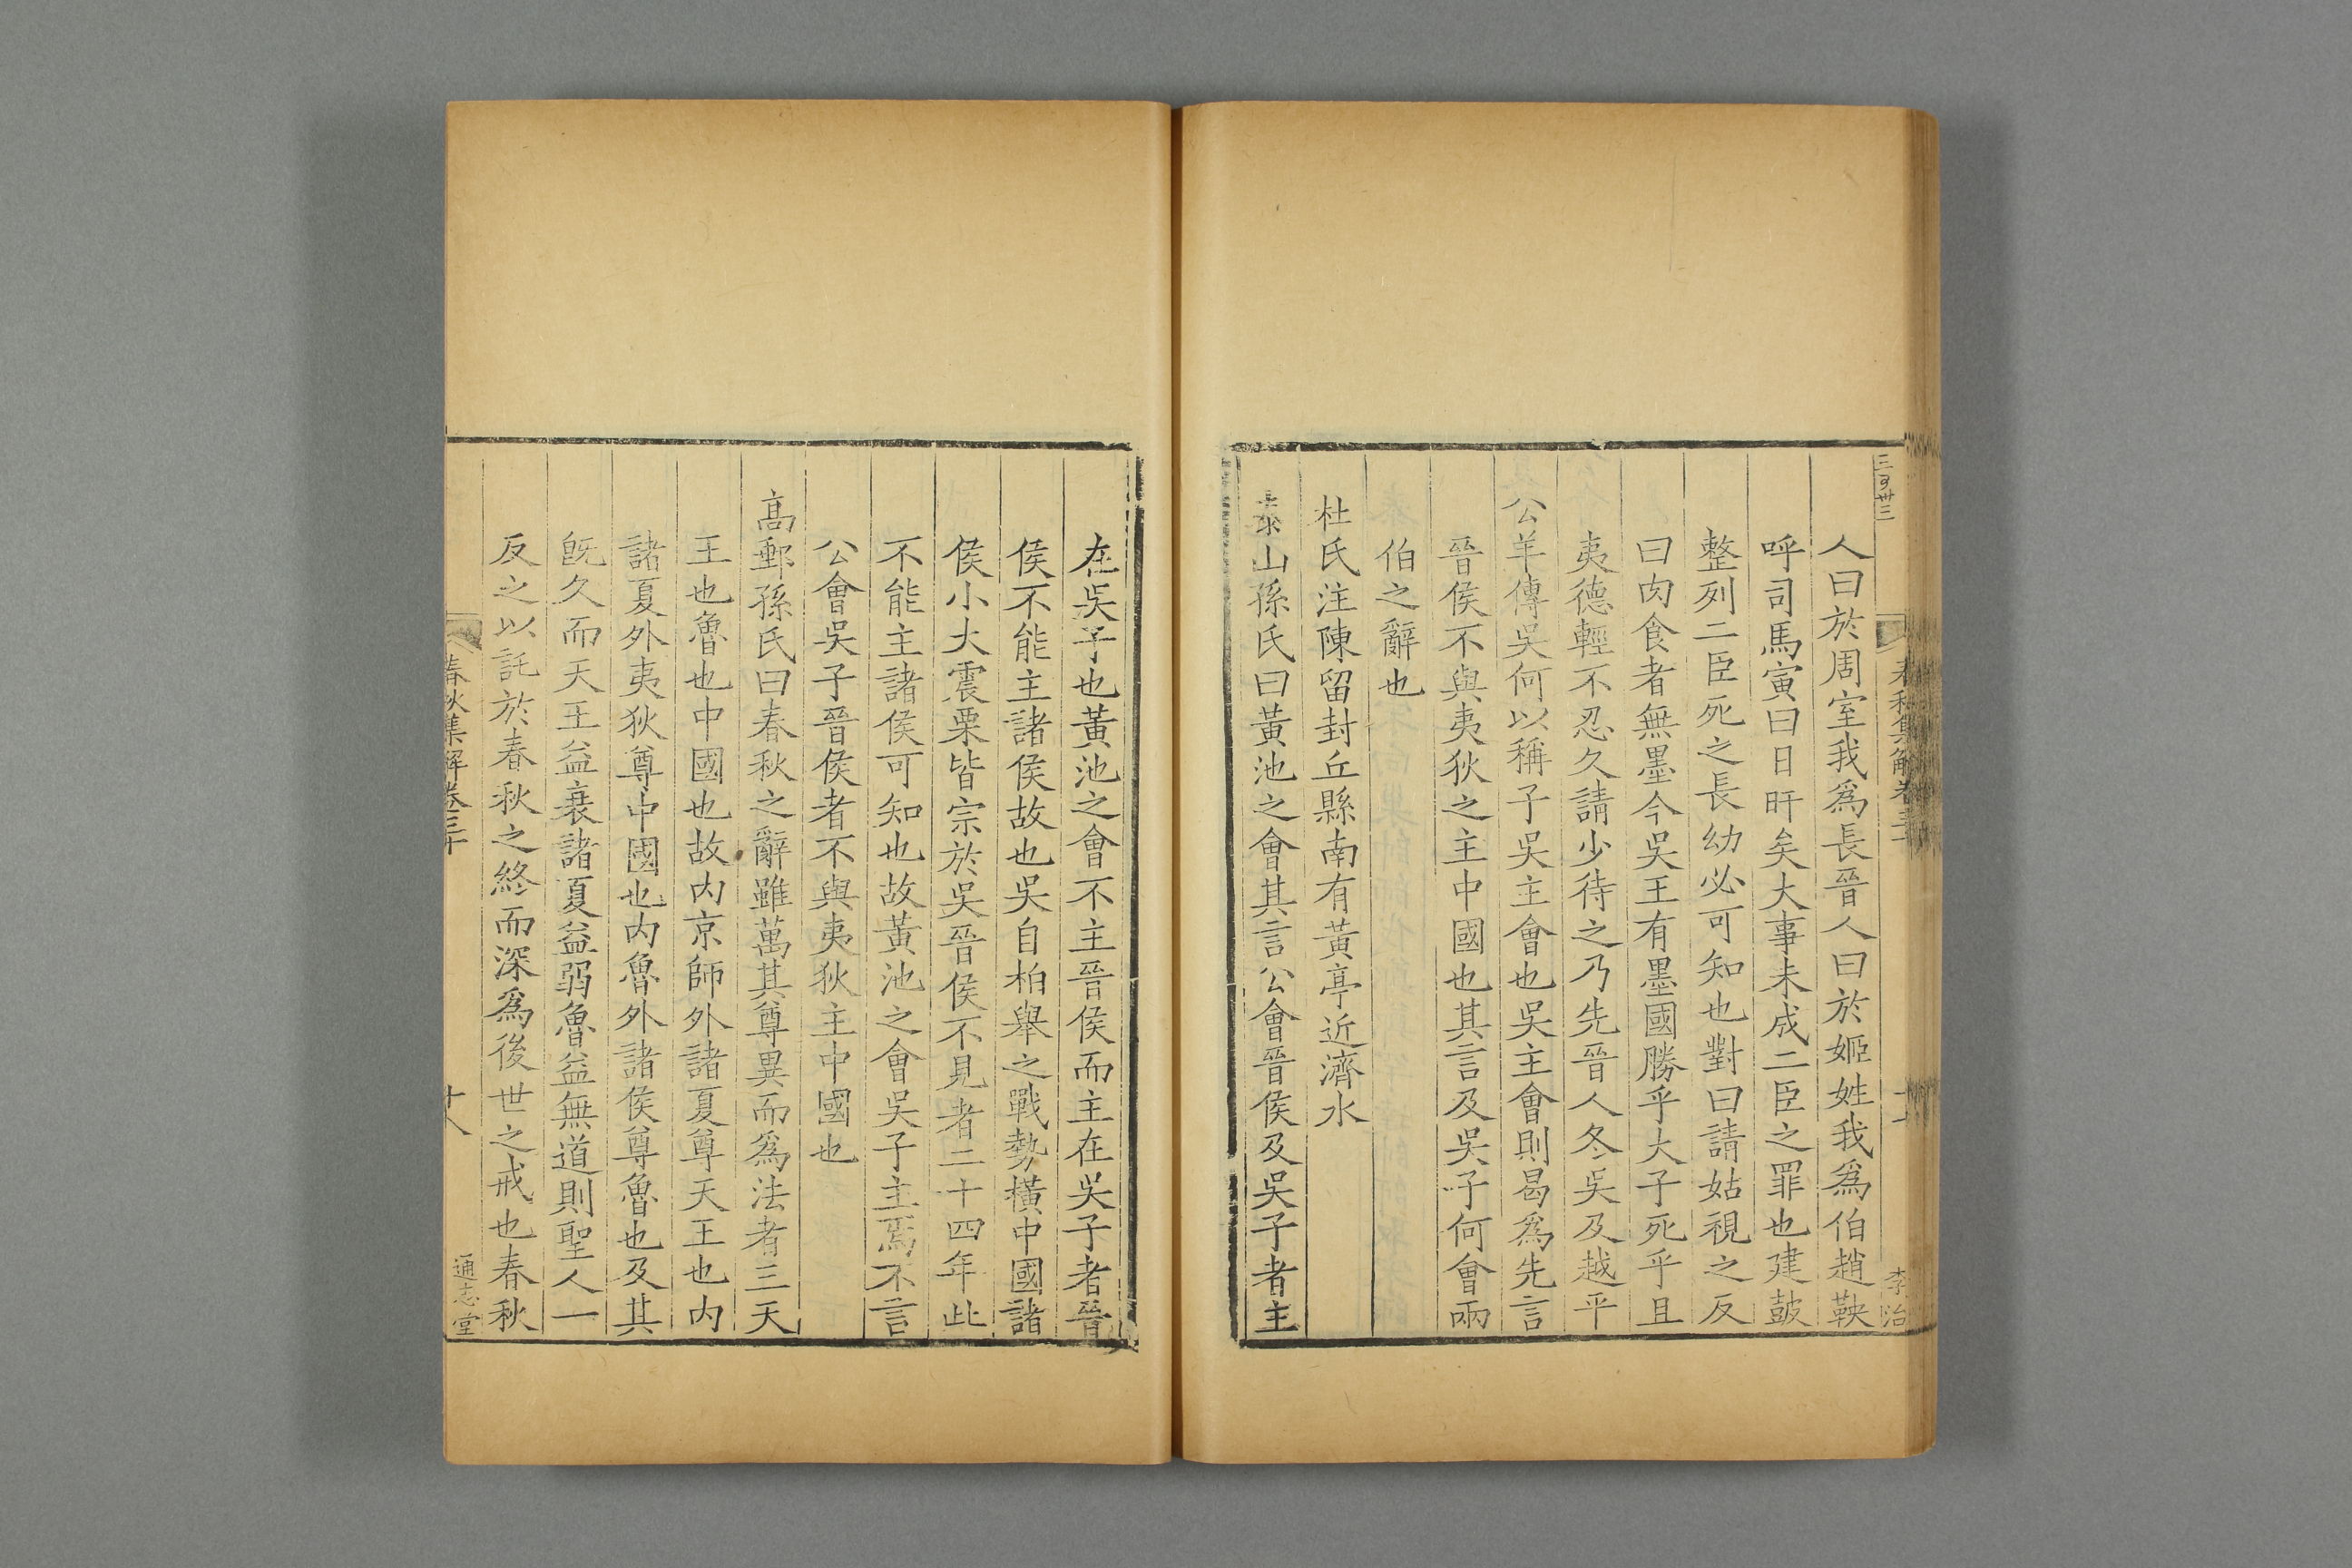 人曰於周室我爲長晉人曰於姬姓我爲伯趙鞅
呼司馬寅曰日旰矣大事未成二臣之罪也建鼓
整列二臣死之長幼必可知也對曰請姑視之反
曰肉食者無墨今吳王有墨國勝乎大子死乎且
夷德輕不忍久請少待之乃先晉人冬吳及越平
公羊傳吳何以稱子吳主會也吳主會則曷爲先言
晉侯不與夷狄之主中國也其言及吳子何會兩
伯之辭也
杜氏注陳留封丘縣南有黃亭近濟水
泰山孫氏曰黃池之會其言公會晉侯及吳子者主
在吳子也黃池之會不主晉侯而主在吳子者晉
侯不能主諸侯故也吳自柏舉之戰勢橫中國諸
侯小大震栗皆宗於吳晉侯不見者二十四年此
不能主諸侯可知也故黃池之會吳子主焉不言
公會吳子晉侯者不與夷狄主中國也
高郵孫氏曰春秋之辭雖萬其尊異而爲法者三天
王也魯也中國也故內京師外諸夏尊天王也內
諸夏外夷狄尊中國也內魯外諸侯尊魯也及其
旣久而天王益衰諸夏益弱魯益無道則聖人一
反之以託於春秋之終而深爲後世之戒也春秋
春秋集解卷三十
十八
通志堂